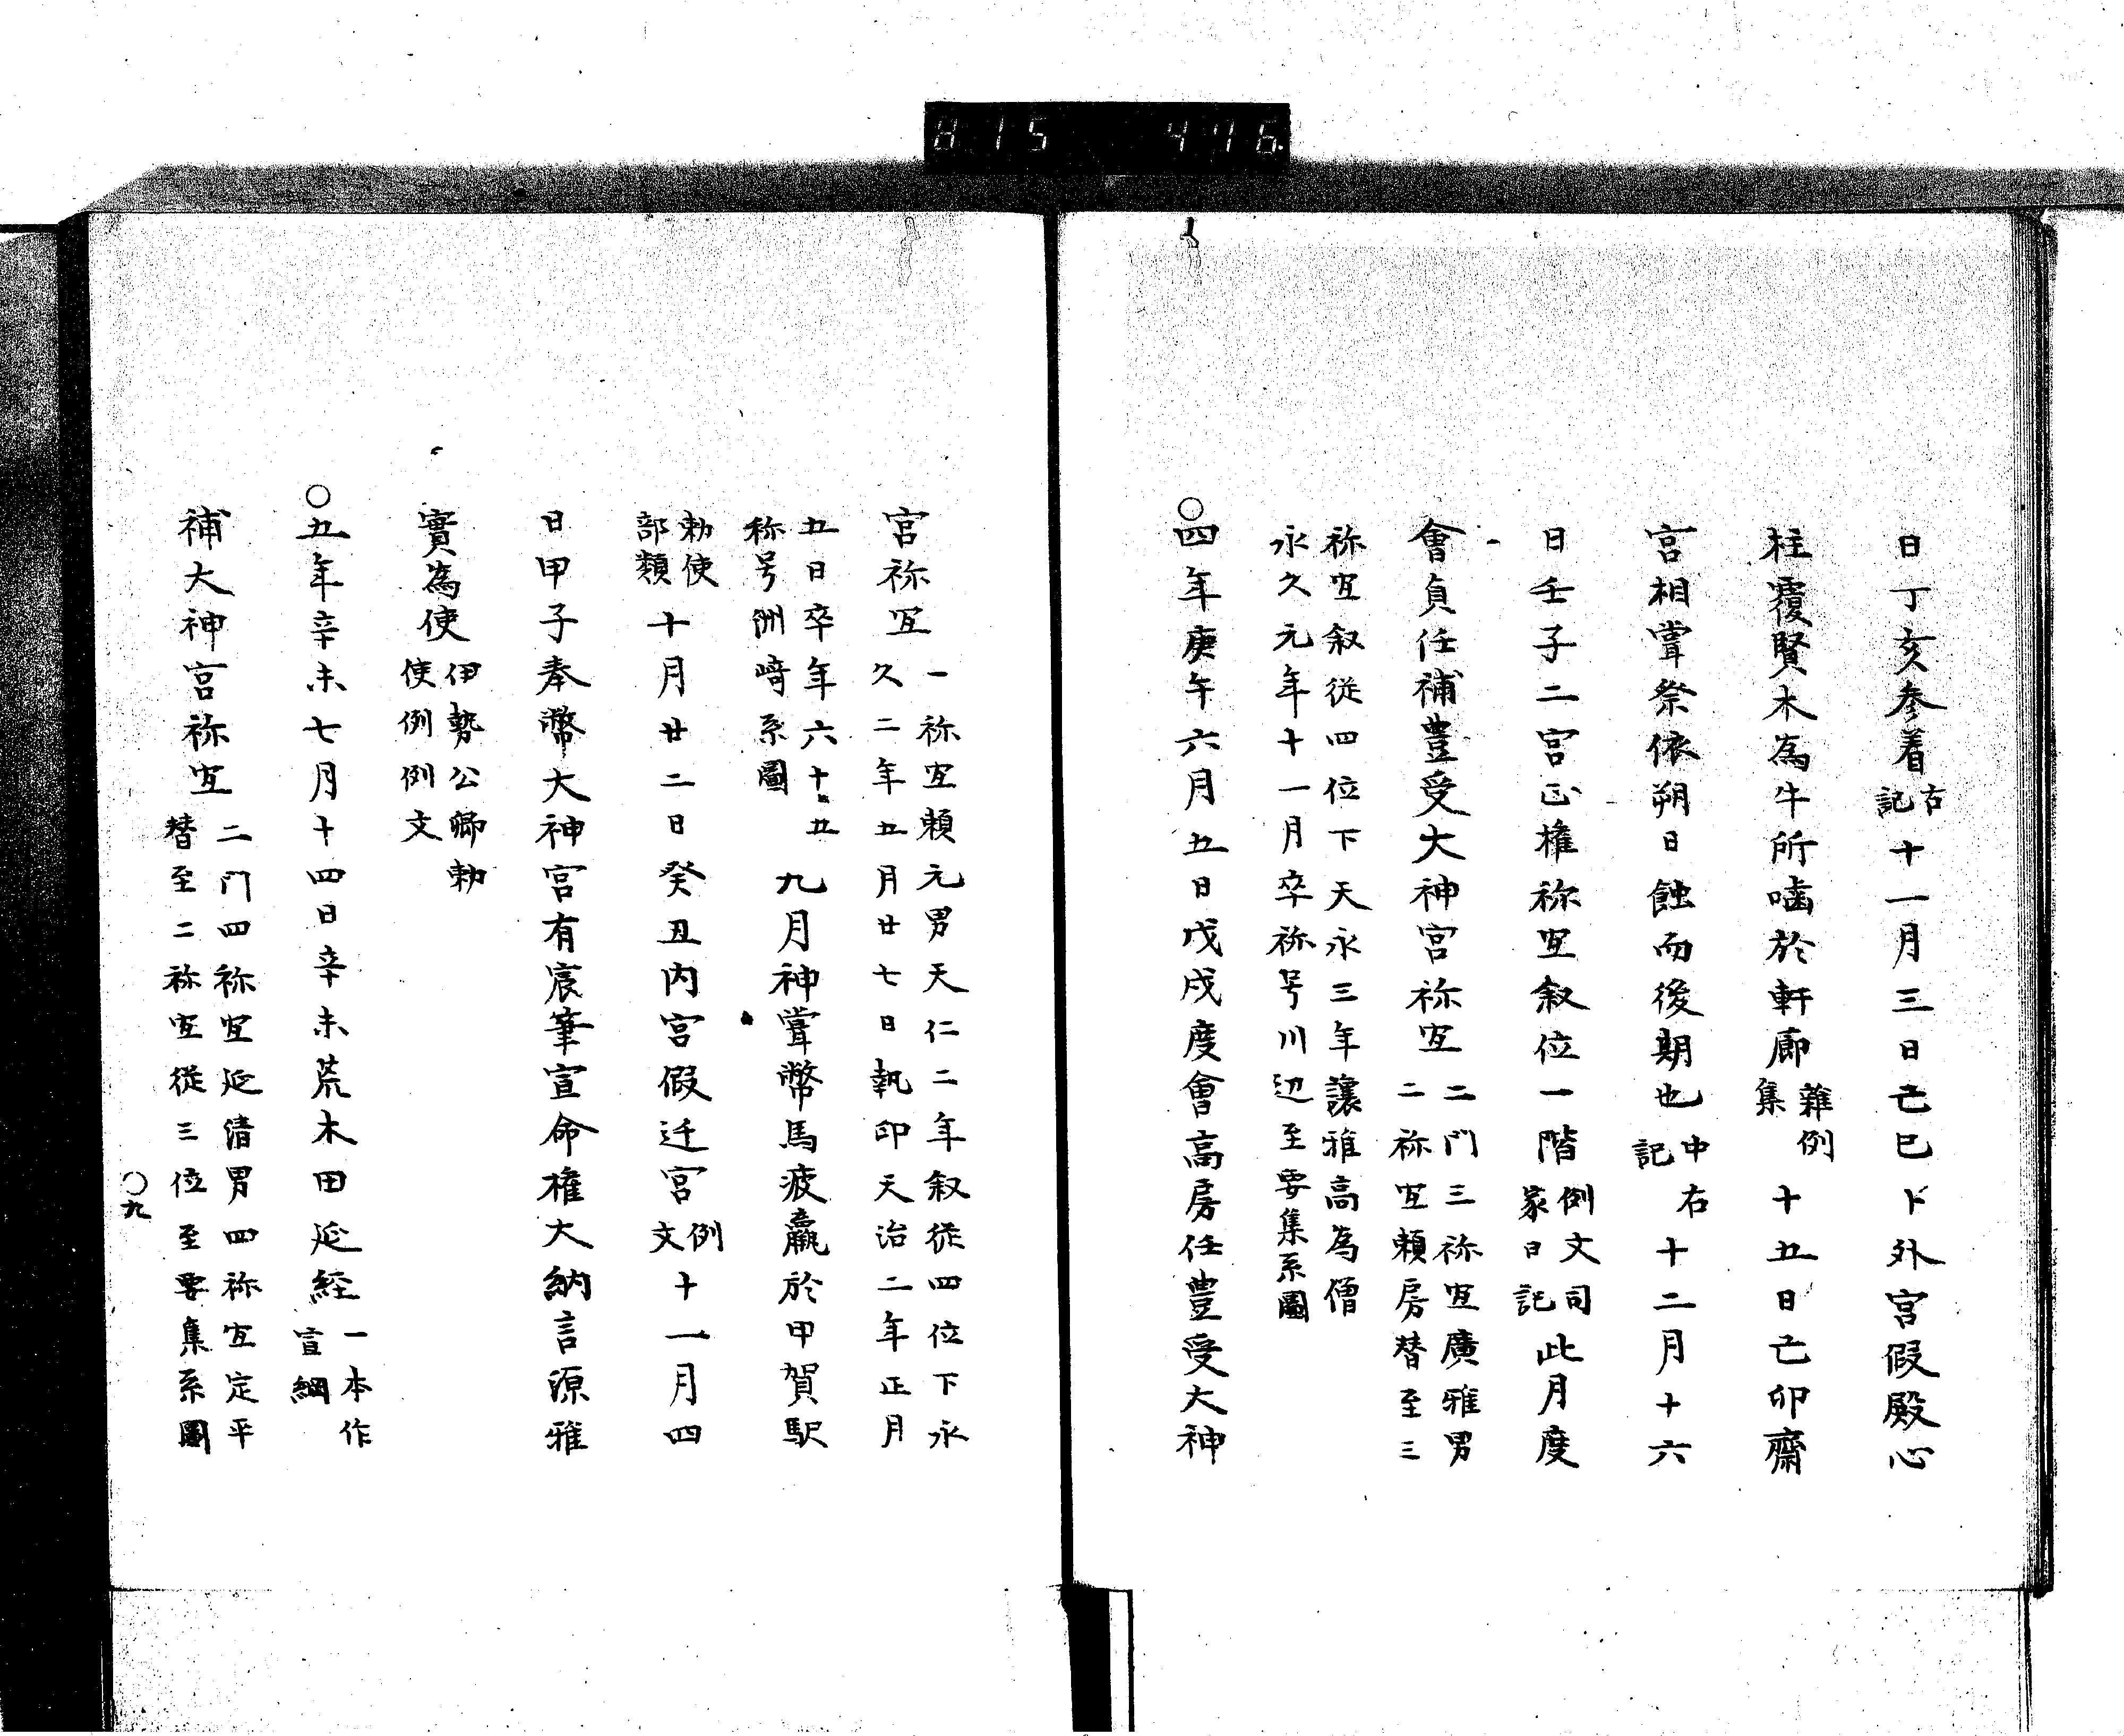 815 476
日丁亥参着右記十一月三日己巳下外宮假殿心
柱覆賢木為牛所噛於軒廊雜例集十五日己卯齋
宮相甞祭依朔日蝕而後期也中右記十二月十六
日壬子二宮正権祢宜叙位一階例文司家日記此月度
會貞任補豊受大神宮祢宜二門三祢宜廣雅男
二祢宜頼房替至三
祢宜叙従四位下天永三年讓雅高為僧
永久元年十一月卒祢号川辺至要集系圖
○四年庚午六月五日戊戌度會高房任豊受大神
宮祢宜一祢宜頼元男天仁二年叙従四位下永
久二年五月廿七日執印天治二年正月
五日卒年六十五
称号洲﨑系圖九月神甞幣馬疲羸於甲賀駅
勅使部類十月廿二日癸丑内宮假迁宮例文十一月四
日甲子奉幣大神宮有宸筆宣命権大納言源雅
實為使伊勢公卿勅使例例文
○五年辛未七月十四日辛未荒木田延経一本作宣綱
補大神宮祢宜二門四祢宜延清男四祢宜定平
替至二祢宜従三位至要集系圖
○九